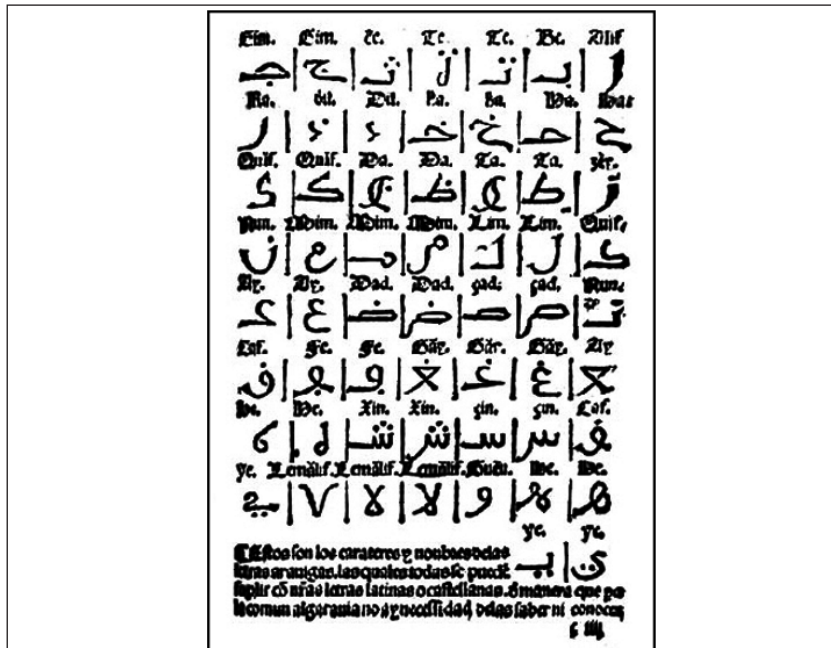 Gim. Gim. Te. Te. Be. Alif
جـ ج ثـ تـ بـ ا
Ra. dil. Dil. ha. ha. Ha.
ر ذ د خـ خ حـ ح
Quif. Quif. Da. Da. Ta. Ta.
ك ظ ط
Nun. Mim. Mim. Mim. Lim. Lim. Quif.
ن م مـ م لـ ل كـ
Ay. Ay. Dad. Dad. çad. çad. Nun.
عـ ع ضـ ض صـ ص نـ
Caf. Fe. Fe. Gãy. Gãy. Gãy. Ay
غـ غ
He. He. Xin. Xin. çin. çin. Caf.
ه شـ ش سـ س
ye. Lemãlif. Lemãlif. Lemãlif. Guau. He. He.
لا لا و ه
ye. ye.
يـ ي
¶ Estos son los carateres y nonbres delas
letras arauigas. las quales todas se puedẽ
suplir cõ nr̃as letras latinas o castellanas. d̃ manera que pa
la comun algarauia no ay necessidad delas saber ni conocer